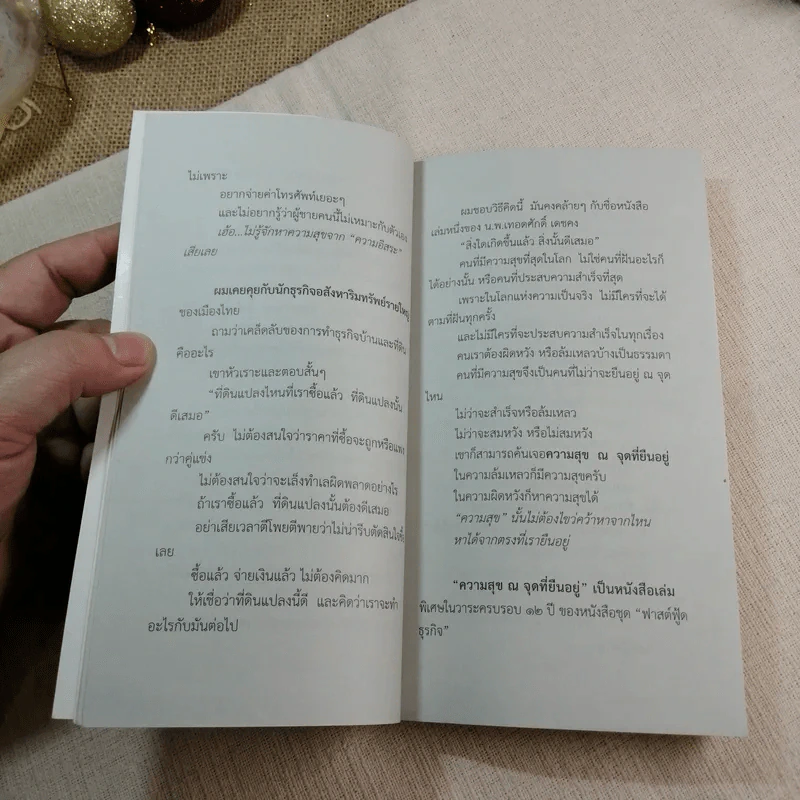 ไม่เพราะ
อยากจ่ายค่าโทรศัพท์เยอะๆ
และไม่อยากรู้ว่าผู้ชายคนนี้ไม่เหมาะกับตัวเอง
เฮ้อ...ไม่รู้จักหาความสุขจาก “ความอิสระ”
เสียเลย
ผมเคยคุยกับนักธุรกิจอสังหาริมทรัพย์รายใหญ่
ของเมืองไทย
ถามว่าเคล็ดลับของการทำธุรกิจบ้านและที่ดิน
คืออะไร
เขาหัวเราะและตอบสั้นๆ
“ที่ดินแปลงไหนที่เราซื้อแล้ว ที่ดินแปลงนั้น
ดีเสมอ”
ครับ ไม่ต้องสนใจว่าราคาที่ซื้อจะถูกหรือแพง
กว่าคู่แข่ง
ไม่ต้องสนใจว่าจะเล็งทำเลผิดพลาดอย่างไร
ถ้าเราซื้อแล้ว ที่ดินแปลงนั้นต้องดีเสมอ
อย่าเสียเวลาตีโพยตีพายว่าไม่น่ารีบตัดสินใจซื้อ
เลย
ซื้อแล้ว จ่ายเงินแล้ว ไม่ต้องคิดมาก
ให้เชื่อว่าที่ดินแปลงนี้ดี และคิดว่าเราจะทำ
อะไรกับมันต่อไป
ผมชอบวิธีคิดนี้ มันคงคล้ายๆ กับชื่อหนังสือ
เล่มหนึ่งของ น.พ.เทอดศักดิ์ เดชคง
“สิ่งใดเกิดขึ้นแล้ว สิ่งนั้นดีเสมอ”
คนที่มีความสุขที่สุดในโลก ไม่ใช่คนที่ฝันอะไรก็
ได้อย่างนั้น หรือคนที่ประสบความสำเร็จที่สุด
เพราะในโลกแห่งความเป็นจริง ไม่มีใครที่จะได้
ตามที่ฝันทุกครั้ง
และไม่มีใครที่จะประสบความสำเร็จในทุกเรื่อง
คนเราต้องผิดหวัง หรือล้มเหลวบ้างเป็นธรรมดา
คนที่มีความสุขจึงเป็นคนที่ไม่ว่าจะยืนอยู่ ณ จุด
ไหน
ไม่ว่าจะสำเร็จหรือล้มเหลว
ไม่ว่าจะสมหวัง หรือไม่สมหวัง
เขาก็สามารถค้นเจอความสุข ณ จุดที่ยืนอยู่
ในความล้มเหลวก็มีความสุขครับ
ในความผิดหวังก็หาความสุขได้
“ความสุข” นั้นไม่ต้องไขว่คว้าหาจากไหน
หาได้จากตรงที่เรายืนอยู่
“ความสุข ณ จุดที่ยืนอยู่” เป็นหนังสือเล่ม
พิเศษในวาระครบรอบ ๑๒ ปี ของหนังสือชุด “ฟาสต์ฟู้ด
ธุรกิจ”